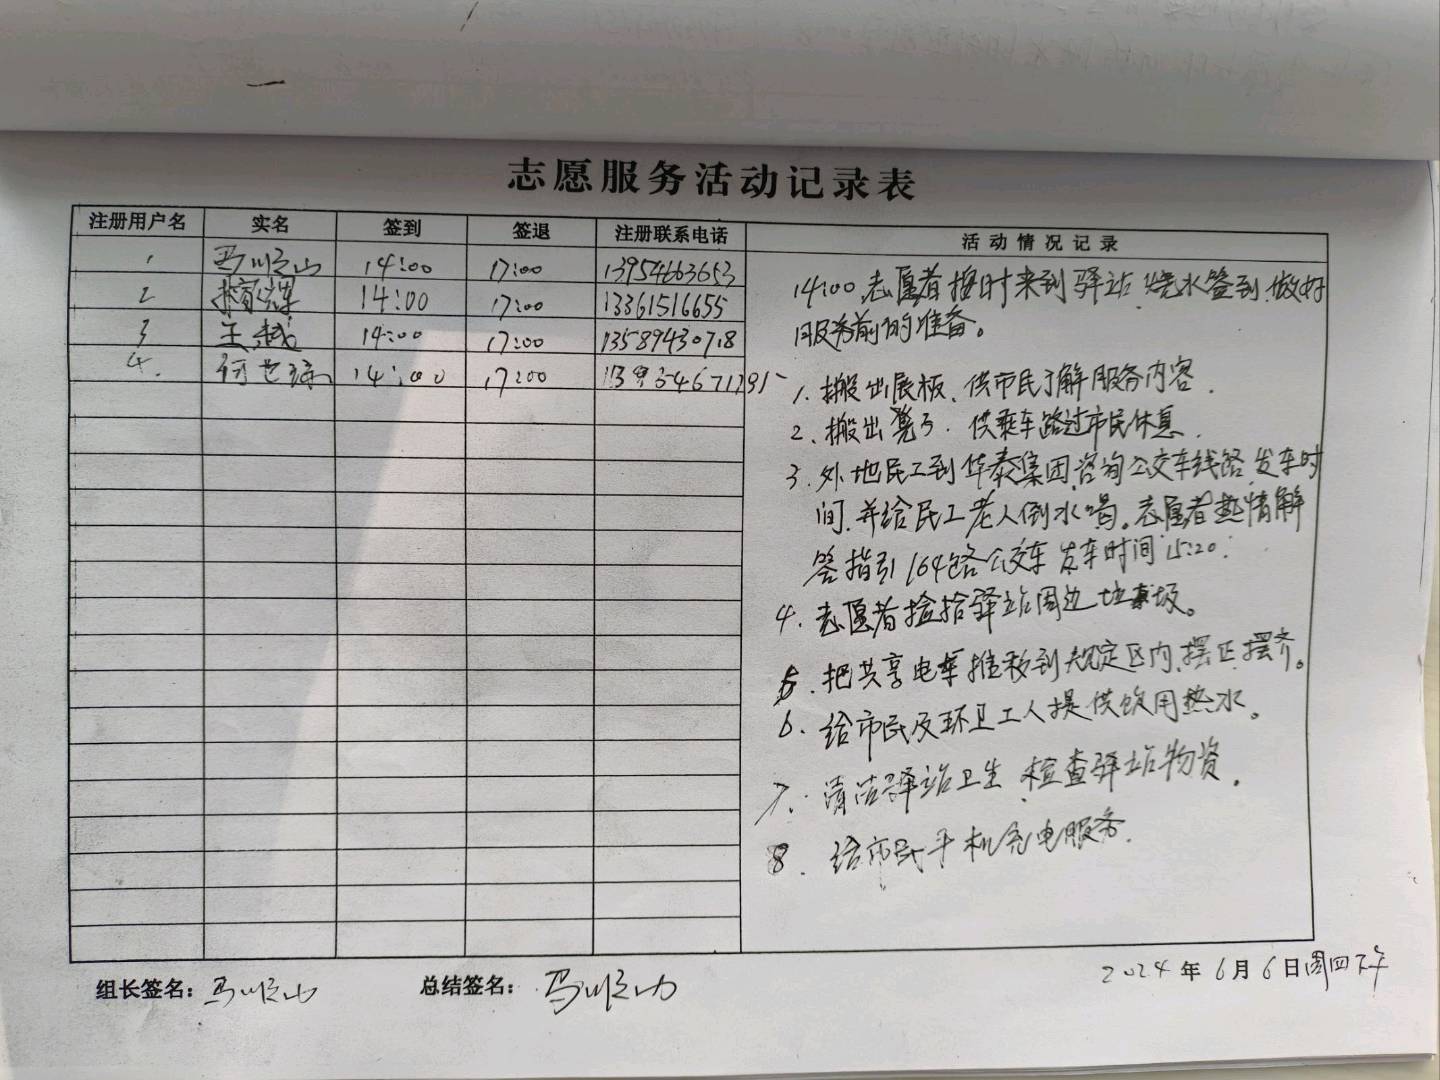 志愿服务活动记录表
注册用户名 实名 签到 签退 注册联系电话 活动情况记录
1 马顺山 14:00 17:00 13954663653
2 14:00 17:00 13361516655
3 王越 14:00 17:00 13589430718
4. 何世 14:00 17:00
14:00志愿者按时来到驿站.烧水签到.做好
服务前的准备。
1、搬出展板、供市民了解服务内容.
2、搬出凳子.供乘车路过市民休息.
3.外地民工到华泰集团.咨询公交车线路.发车时
间.并给民工老人倒水喝。志愿者热情解
答指引164路公交车发车时间15:20.
4.志愿者捡拾驿站周边垃圾。
5.把共享电车推移到规定区内、摆正.摆齐。
6.给市民及环卫工人提供饮用热水。
7.清洁驿站卫生.检查驿站物资。
8.给市民手机充电服务.
组长签名:马顺山 总结签名:马顺山 2024年6月6日周四下午